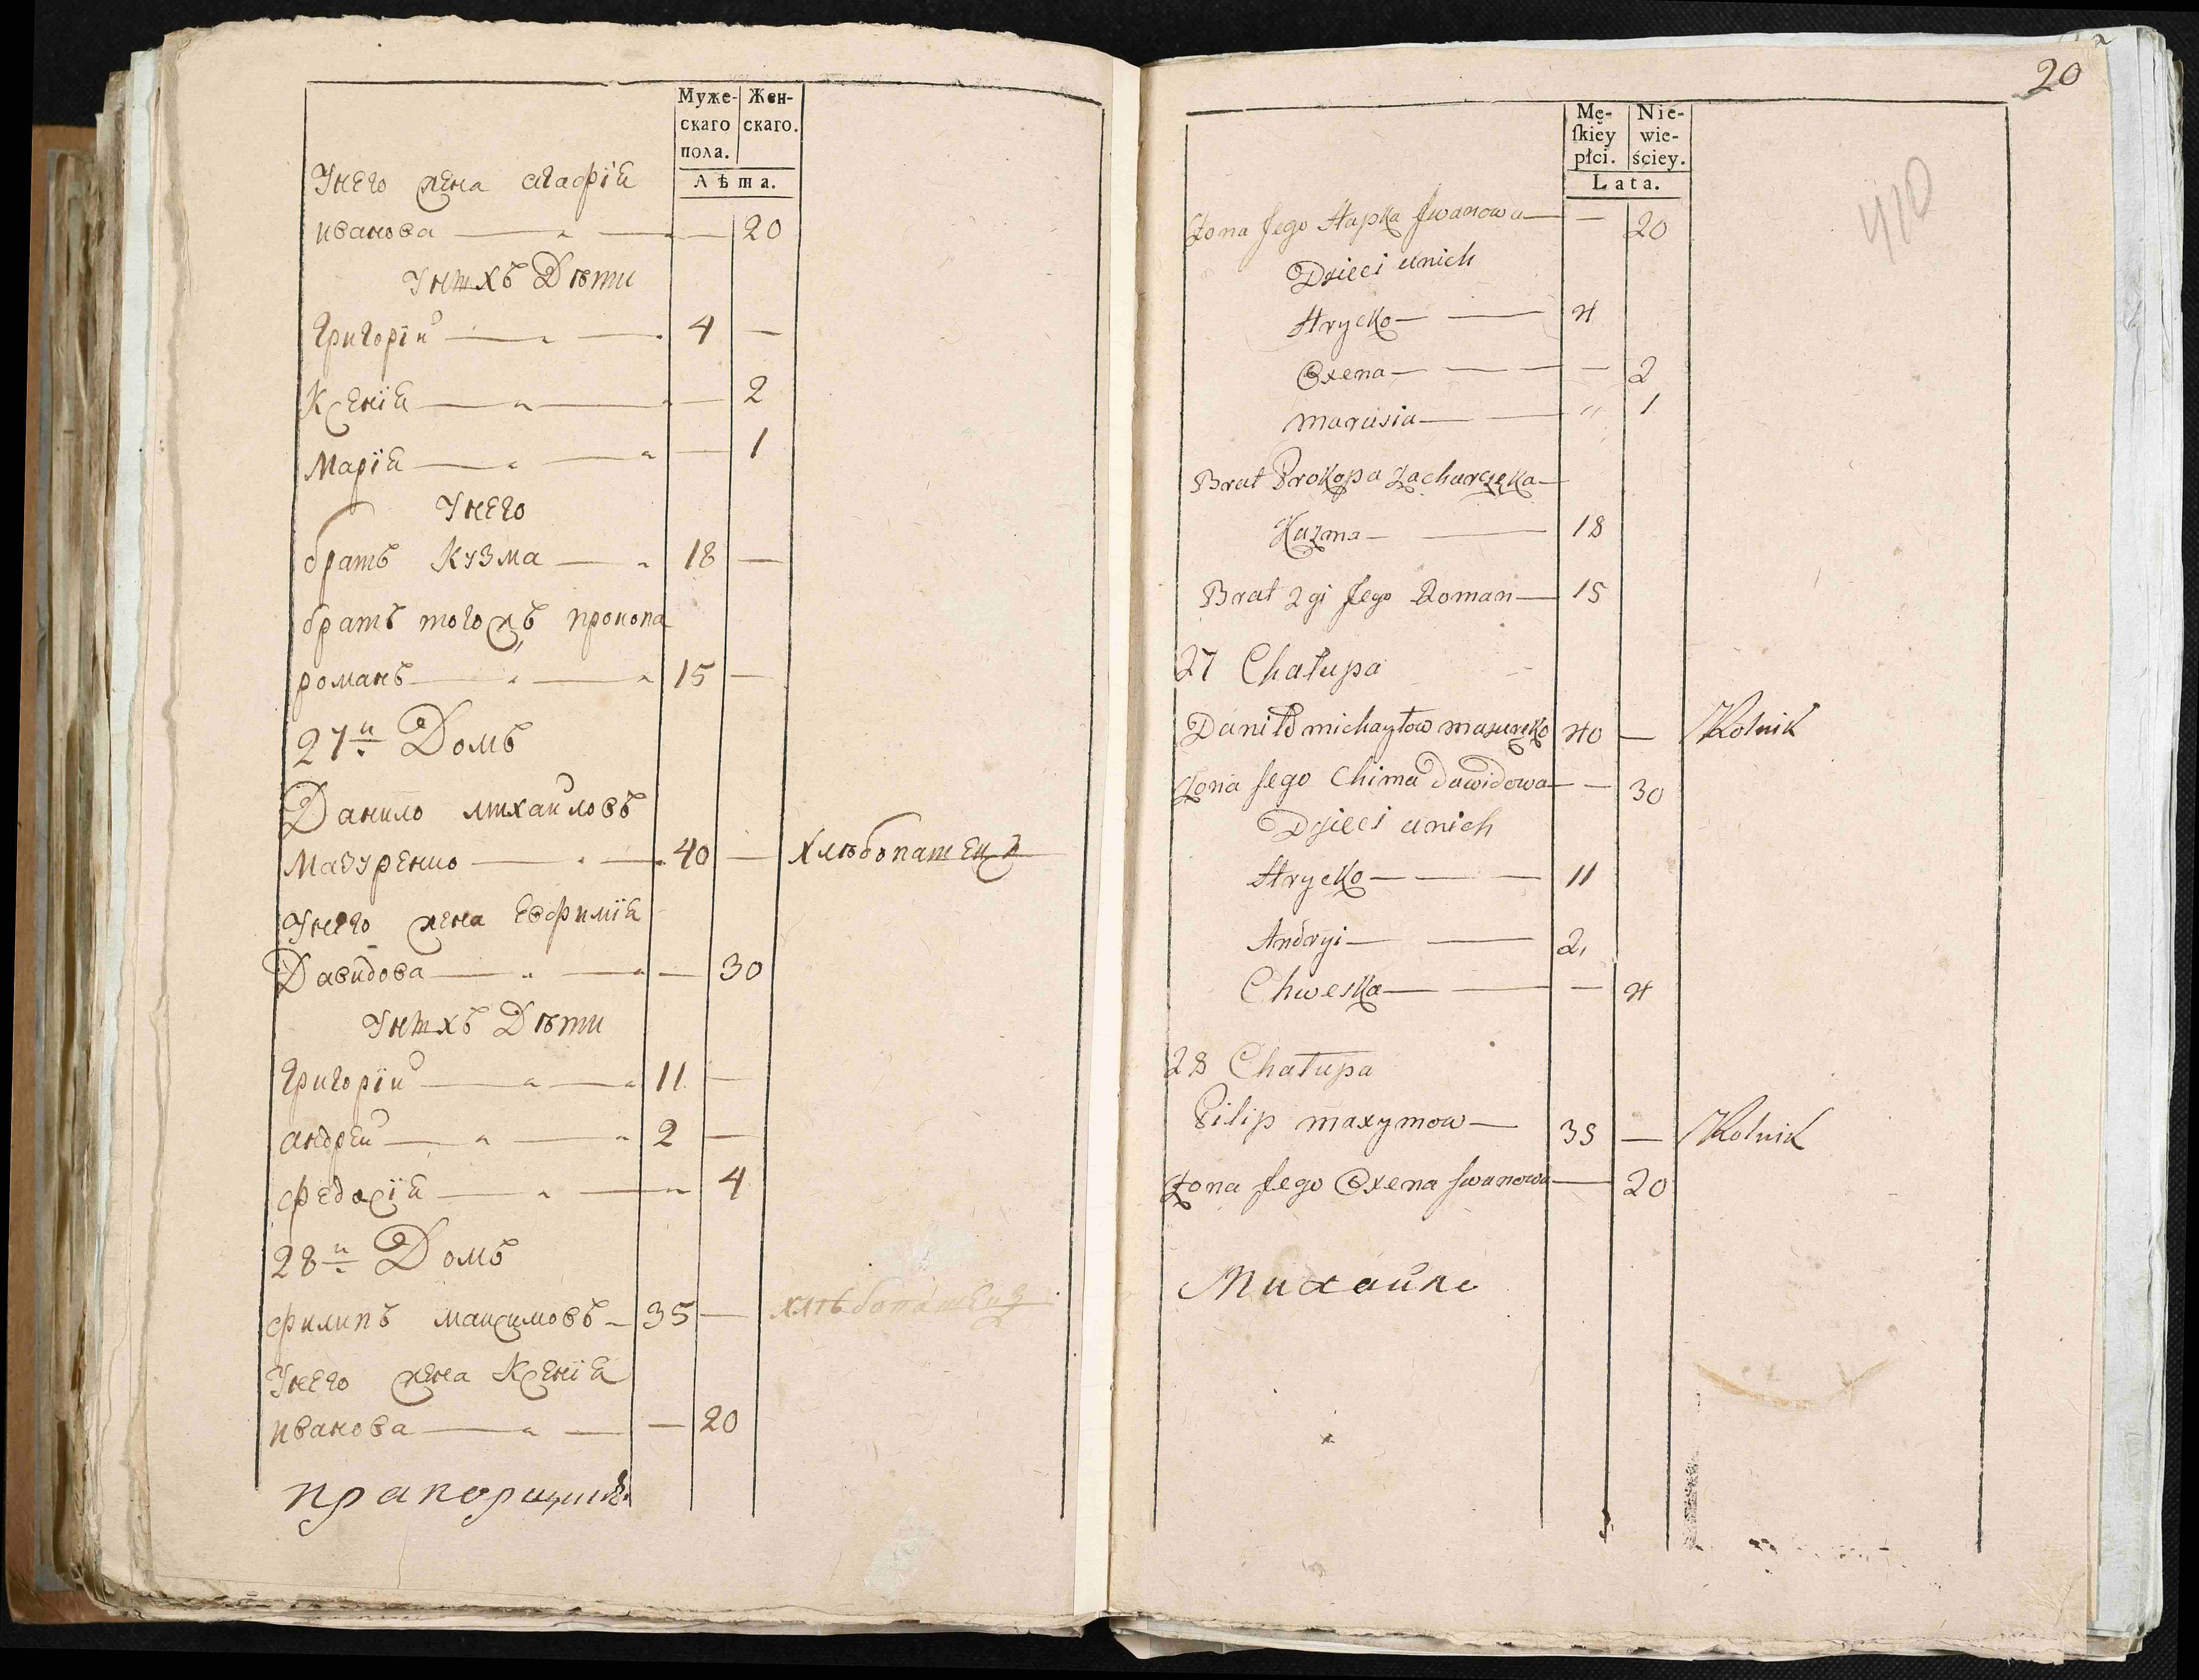 Муже-
скаго
пола.
Жен-
скаго.
Лѣта.
Унего жена агафїя
иванова — — — 20
Унихъ Дѣти
Григорїй — — 4 —
Ксенїя — — — 2
Марїя — — — 1
Унего
братъ Кузма — 18 —
братъ тогожъ прокопа
романъ — — 15 —
27й Домъ
Данило михайловъ
Мазуренко — — 40 — хлѣбопашецъ
Унего жена Евфимїя
Давидова — — — 30
Унихъ Дѣти
Григорїй — — 11 —
андрей — — 2 —
федосїя — — 4
28й Домъ
филипъ максимовъ — 35 — хлѣбопашецъ
Унего жена Ксенїя
иванова — — — 20
прапорщикъ
20
410
Mę-
ſkiéy
płci.
Nié-
wie-
ściey.
Lata.
Żona Jego Hapka Jwanowa — — 20
Dzieci unich
Hrycko — — 4
Oxena — — — — 2
Marusia — — " 1
Brat Prokopa Zacharczęka —
Kuzma — — 18
Brat 2gi Jego Roman — 15
27 Chałupa
Daniło michayłow mazuręko 40 — Rolnik
Żona Jego Chima Dawidowa — — 30
Dzieci unich
Hrycko — — — 11
Andryi — — 2
Chweska — — — 4
28 Chałupa
Pilip maxymow — 35 — Rolnik
Żona Jego Oxena Jwanowa — 20
Михайло